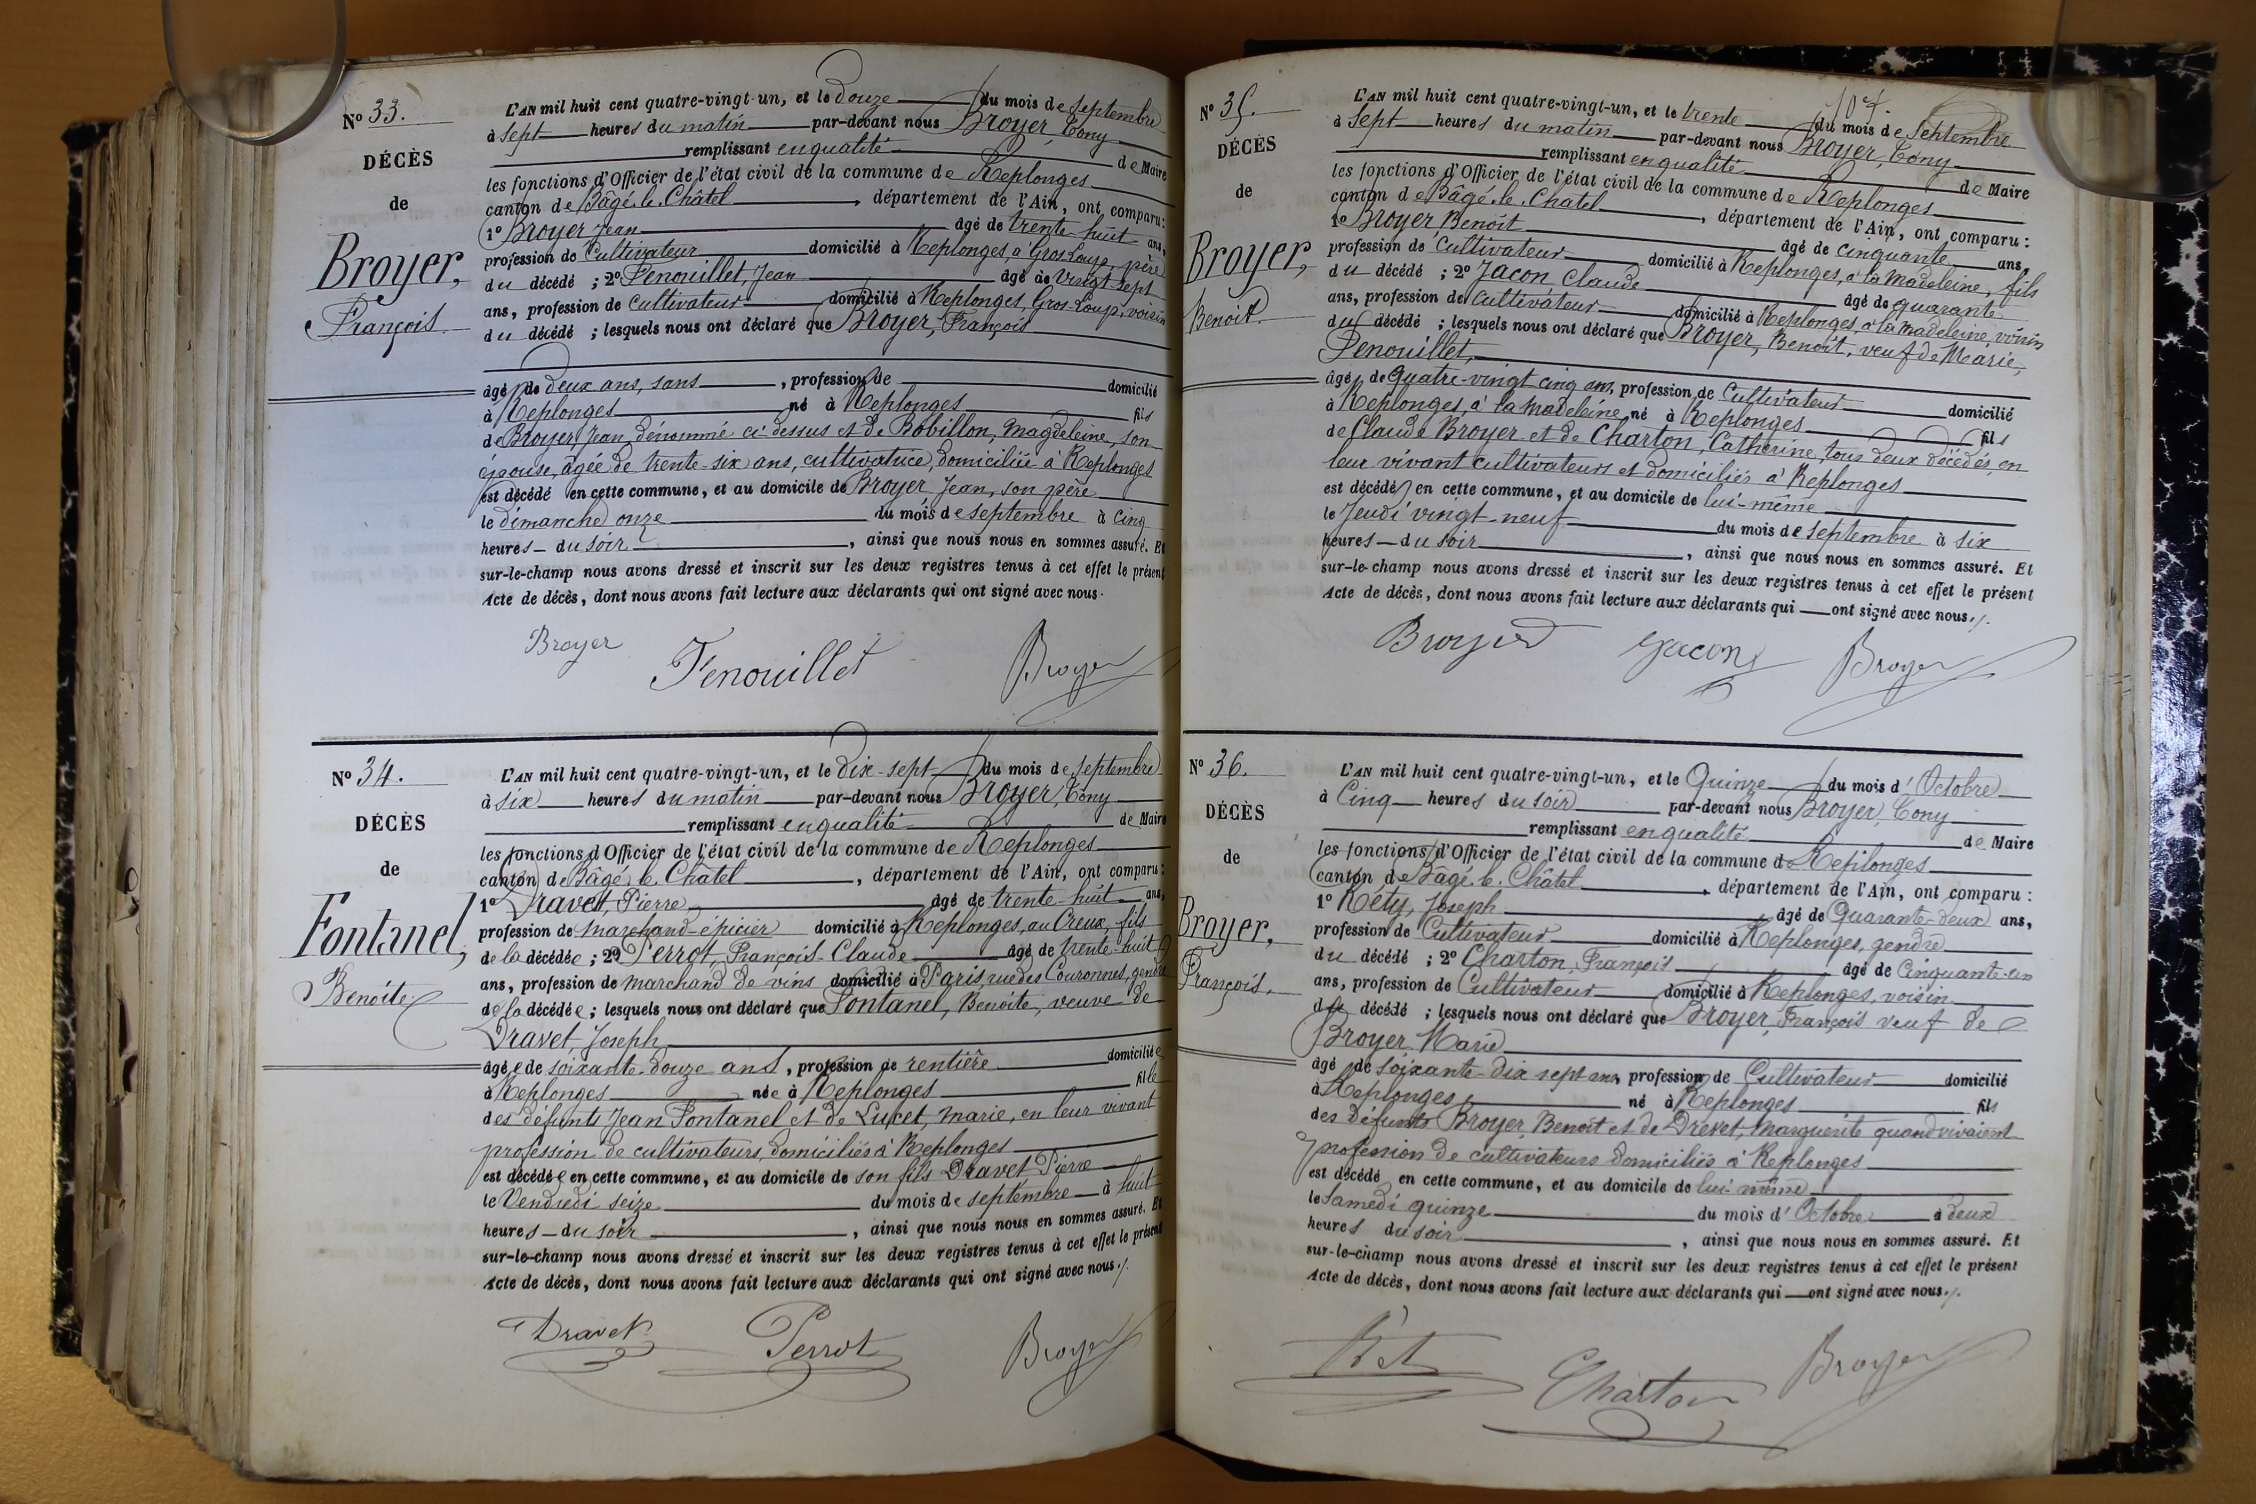 N° 33.
DÉCÈS
de
Broyer,
François.
L'AN mil huit cent quatre-vingt-un, et le Douze du mois de septembre
à sept heures du matin par-devant nous Broyer, Tony
remplissant en qualité de Maire
les fonctions d'Officier de l'état civil de la commune de Replonges
canton de Bâgé-le-Châtel, département de l'Ain, ont comparu:
1° Broyer Jean âgé de trente-huit ans,
profession de Cultivateur domicilié à Replonges, à Gros Loup, père
du décédé ; 2° Fenouillet, Jean âgé de vingt-sept
ans, profession de cultivateur domicilié à Replonges, Gros-Loup, voisin
du décédé ; lesquels nous ont déclaré que Broyer, François
âgé de deux ans, sans, profession de domicilié
à Replonges né à Replonges fils
de Broyer, Jean, dénommé ci-dessus et de Bobillon, Magdeleine, son
épouse, âgée de trente-six ans, cultivatrice, domiciliée à Replonges
est décédé en cette commune, et au domicile de Broyer, Jean, son père
le dimanche onze du mois de septembre à cinq
heures du soir, ainsi que nous nous en sommes assuré. Et
sur-le-champ nous avons dressé et inscrit sur les deux registres tenus à cet effet le présent
Acte de décès, dont nous avons fait lecture aux déclarants qui ont signé avec nous.
Broyer Fenouillet Broyer
N° 34.
DÉCÈS
de
Fontanel,
Benoite
L'AN mil huit cent quatre-vingt-un, et le Dix-sept du mois de septembre
à six heures du matin par-devant nous Broyer, Tony
remplissant en qualité de Maire
les fonctions d'Officier de l'état civil de la commune de Replonges
canton de Bâgé-le-Châtel, département de l'Ain, ont comparu:
1° Dravet, Pierre âgé de trente-huit ans,
profession de marchand-épicier domicilié à Replonges, au Creux, fils
de la décédée ; 2° Perrot, François-Claude âgé de trente-huit
ans, profession de marchand de vins domicilié à Paris, rue des Couronnes, gendre
de la décédée ; lesquels nous ont déclaré que Fontanel, Benoite, veuve de
Dravet, Joseph
âgée de soixante-douze ans, profession de rentière domiciliée
à Replonges née à Replonges fille
des défunts Jean Fontanel et de Lucet, Marie, en leur vivant
profession de cultivateurs, domiciliés à Replonges
est décédée en cette commune, et au domicile de son fils Dravet Pierre
le Vendredi seize du mois de septembre à huit
heures du soir, ainsi que nous nous en sommes assuré. Et
sur-le-champ nous avons dressé et inscrit sur les deux registres tenus à cet effet le présent
Acte de décès, dont nous avons fait lecture aux déclarants qui ont signé avec nous./.
Dravet Perrot Broyer
N° 35.
DÉCÈS
de
Broyer,
Benoit.
L'AN mil huit cent quatre-vingt-un, et le trente du mois de Septembre
à Sept heures du matin par-devant nous Broyer, Tony
remplissant en qualité de Maire
les fonctions d'Officier de l'état civil de la commune de Replonges
canton de Bâgé-le-Châtel, département de l'Ain, ont comparu :
1° Broyer Benoit âgé de cinquante ans,
profession de cultivateur domicilié à Replonges, à la Madeleine, fils
du décédé ; 2° Jacon, Claude âgé de quarante
ans, profession de cultivateur domicilié à Replonges, à la Madeleine, voisin
du décédé ; lesquels nous ont déclaré que Broyer, Benoit, veuf de Marie,
Fenouillet,
âgé de quatre-vingt cinq ans, profession de Cultivateur domicilié
à Replonges, à la Madeleine, né à Replonges fils
de Claude Broyer et de Charton, Catherine, tous deux décédés, en
leur vivant cultivateurs et domiciliés à Replonges
est décédé en cette commune, et au domicile de lui-même
le Jeudi vingt-neuf du mois de septembre à six
heures du soir, ainsi que nous nous en sommes assuré. Et
sur-le-champ nous avons dressé et inscrit sur les deux registres tenus à cet effet le présent
Acte de décès, dont nous avons fait lecture aux déclarants qui ont signé avec nous./.
Broyer Jacon Broyer
N° 36.
DÉCÈS
de
Broyer,
François.
L'AN mil huit cent quatre-vingt-un, et le Quinze du mois d'Octobre
à Cinq heures du soir par-devant nous Broyer, Tony
remplissant en qualité de Maire
les fonctions d'Officier de l'état civil de la commune de Replonges
canton de Bâgé-le-Châtel, département de l'Ain, ont comparu :
1° Réty, Joseph âgé de Quarante-deux ans,
profession de Cultivateur domicilié à Replonges, gendre
du décédé ; 2° Charton, François âgé de Cinquante-un
ans, profession de Cultivateur domicilié à Replonges, voisin
du décédé ; lesquels nous ont déclaré que Broyer, François veuf de
Broyer Marie
âgé de soixante-dix sept ans, profession de Cultivateur domicilié
à Replonges né à Replonges fils
des défunts Broyer, Benoit et de Drevet, Marguerite quand vivaient
profession de cultivateurs domiciliés à Replonges
est décédé en cette commune, et au domicile de lui-même
le Samedi quinze du mois d'Octobre à deux
heures du soir, ainsi que nous nous en sommes assuré. Et
sur-le-champ nous avons dressé et inscrit sur les deux registres tenus à cet effet le présent
Acte de décès, dont nous avons fait lecture aux déclarants qui ont signé avec nous./.
Charton Broyer